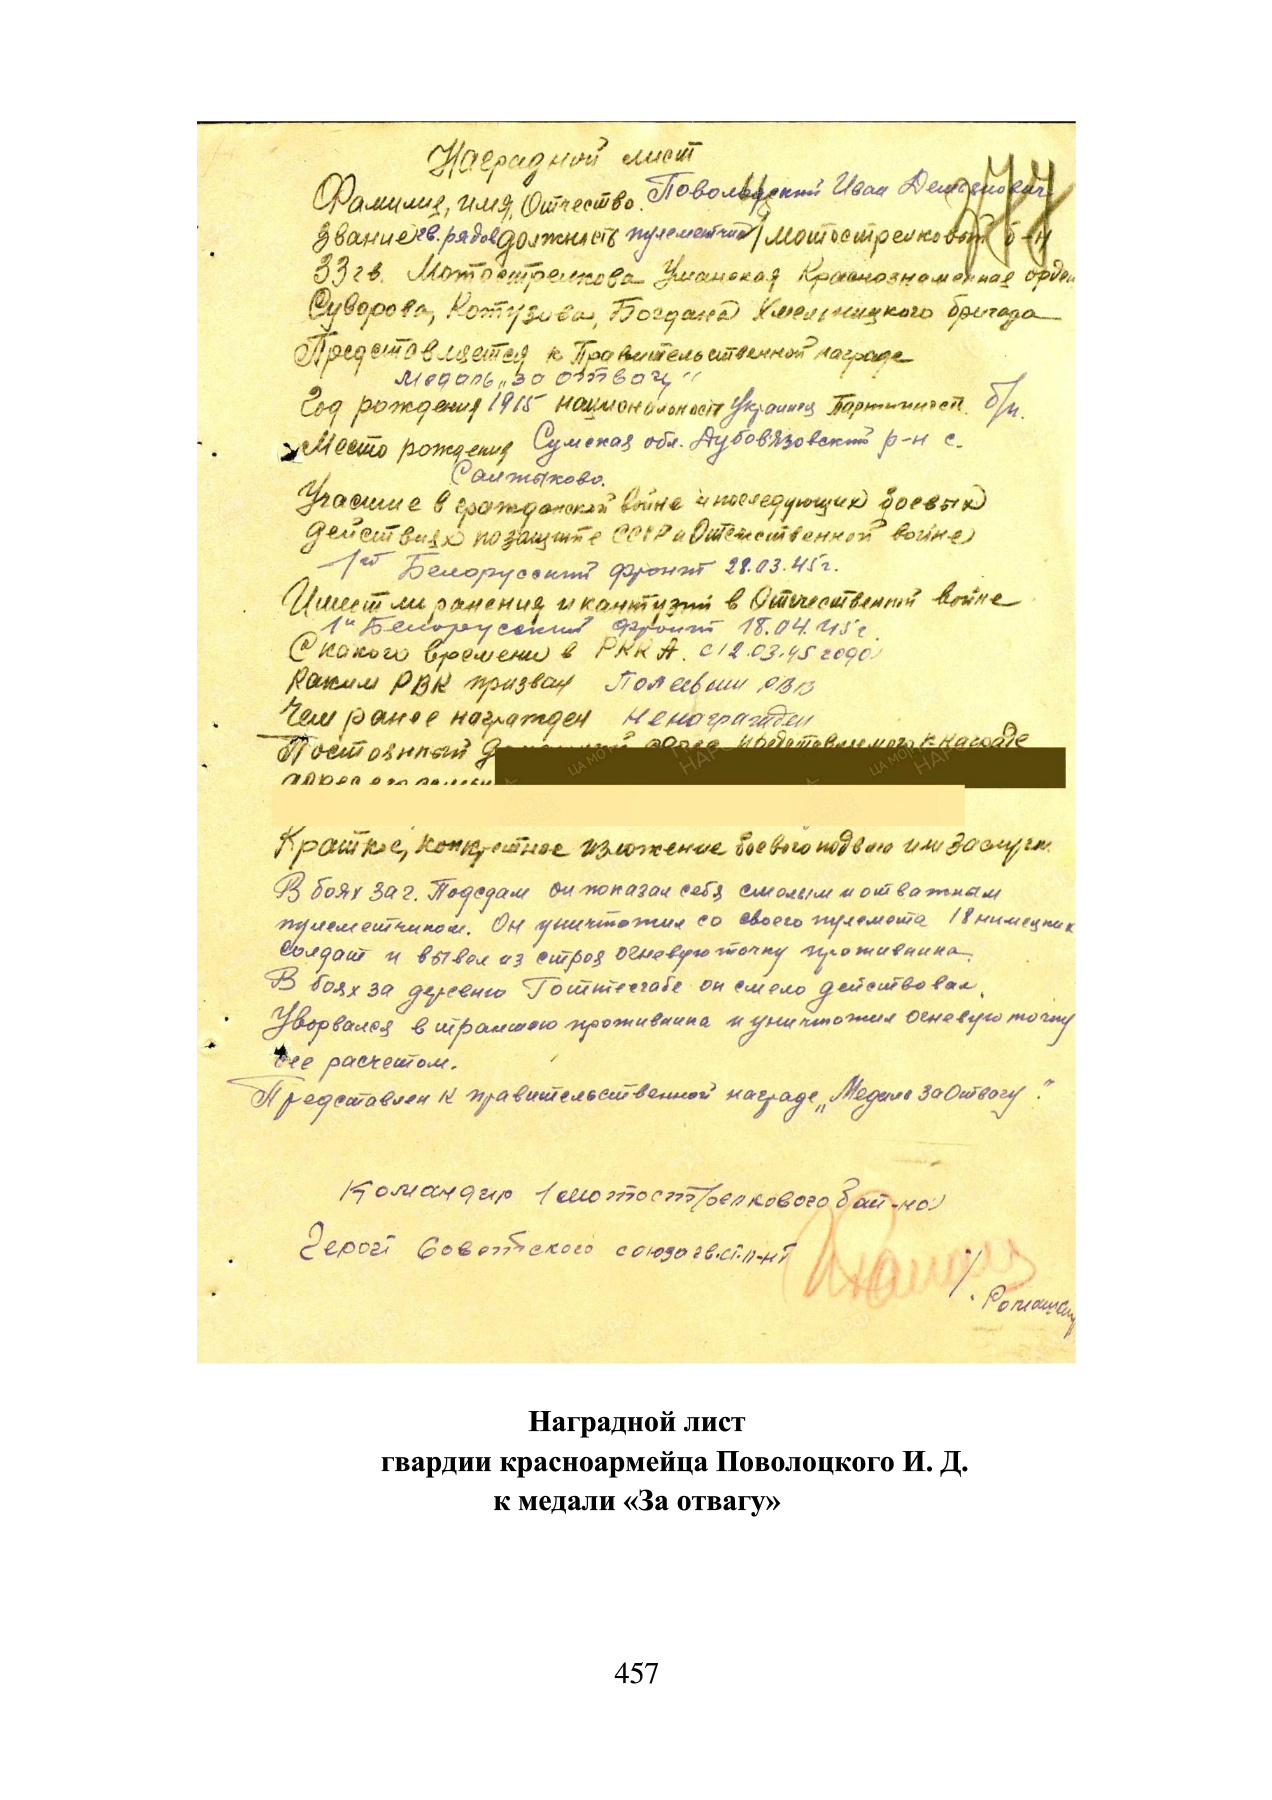 Наградной лист
Фамилия, имя, Отчество. Поволоцкий Иван Демьянович
Звание гв. рядов должность пулеметчик 1 мотострелковый б-н
33 гв. Мотострелкова Уманская Краснознаменная орден
Суворова, Котузова, Богдана Хмельницкого бригада
Представляется к Правительственной награде
Медаль „за отвагу"
Год рождения 1915 национальност Украинец Партийност. б/п.
Место рождения Сумская обл. Дубовязовский р-н с.
Салтыково.
Учасние в гражданской войне и последующих боевых
действиях по защите СССР и Отечественной войне
1й Белорусский фронт 28.03.45г.
Имеет ли ранения и кантузий в Отечественной войне
1й Белорусский фронт 18.04.45г.
С какого времени в РККА. с 12.03.45 года
Каким РВК призван РВВ
Чем ранее награжден ненагражден
Постоянный адрес представляемого к награде
адрес его семьи
Краткое, конкретное изложение боевого подвига или заслуги.
В боях за г. Подсдам он показал себя смелым и отважным
пулеметчиком. Он уничтожил со своего пулемета 18 нимецких
солдат и вывел из строя огневую точку проживника.
В боях за деревню он смело действовал.
Уворвался в траншею проживника и уничтожил огневую точку
с ее расчетом.
Представлен к правительственной награде „Медаль за Отвагу".
Командир 1 мотострелкового бат-на
Герой Советского союза гв.ст.л-нт
Наградной лист
гвардии красноармейца Поволоцкого И. Д.
к медали «За отвагу»
457